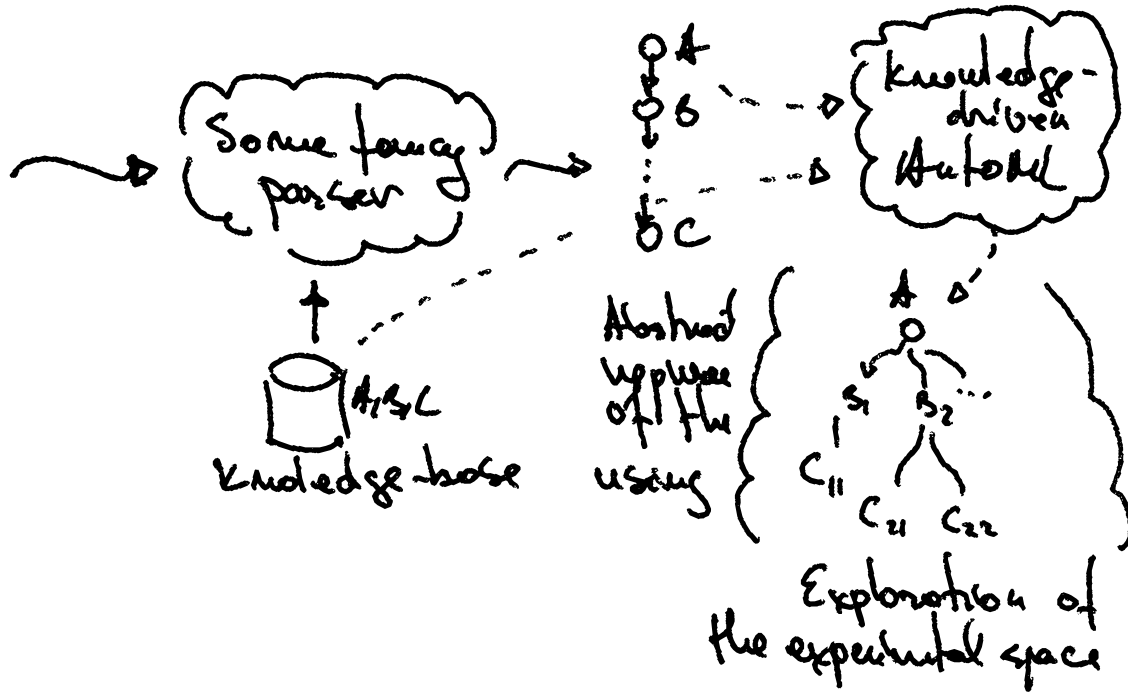 Some fancy
parser
A
B
C
knowledge-
driven
AutoML
A,B,C
Knoledge-base
Abstract
of the
using
A
B₁
B₂
...
C₁₁
C₂₁
C₂₂
Exploration of
the experimental space